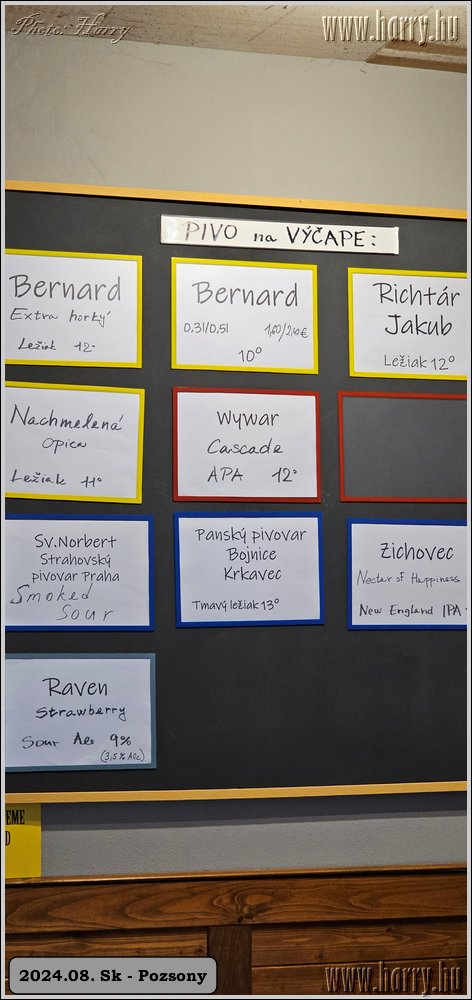 Photo: Harry
www.harry.hu
PIVO na VÝČAPE:
Bernard
Extra horký
Ležiak 12°
Bernard
0,3l/0,5l 1,60/2,10€
10°
Richtár
Jakub
Ležiak 12°
Nachmelená
opica
Ležiak 11°
Wywar
Cascade
APA 12°
Sv.Norbert
Strahovský
pivovar Praha
Smoked
Sour
Panský pivovar
Bojnice
Krkavec
Tmavý ležiak 13°
Zichovec
Nectar of Happiness
New England IPA
Raven
Strawberry
Sour Ale 9%
(3,5% Alc)
EME
D
2024.08. Sk - Pozsony
www.harry.hu